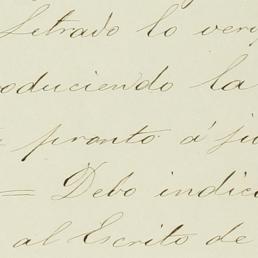 Letrado lo ver
oduciendo la
= pronto á ju
= Debo indic
al Escrito de